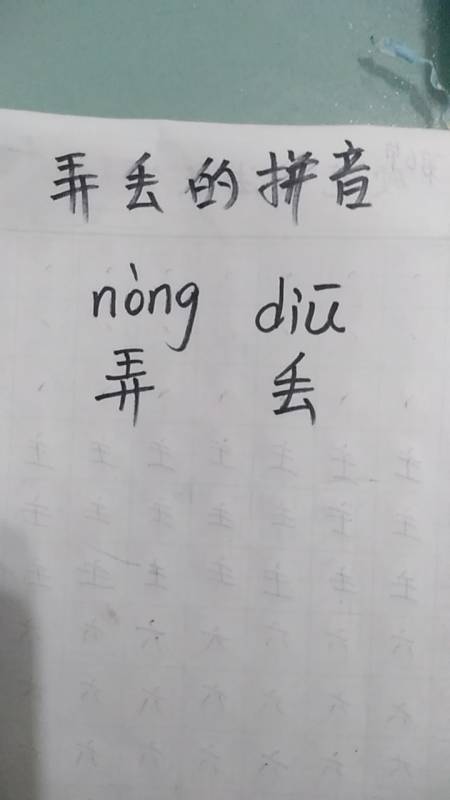 弄丢的拼音
nòng diū
弄 丢